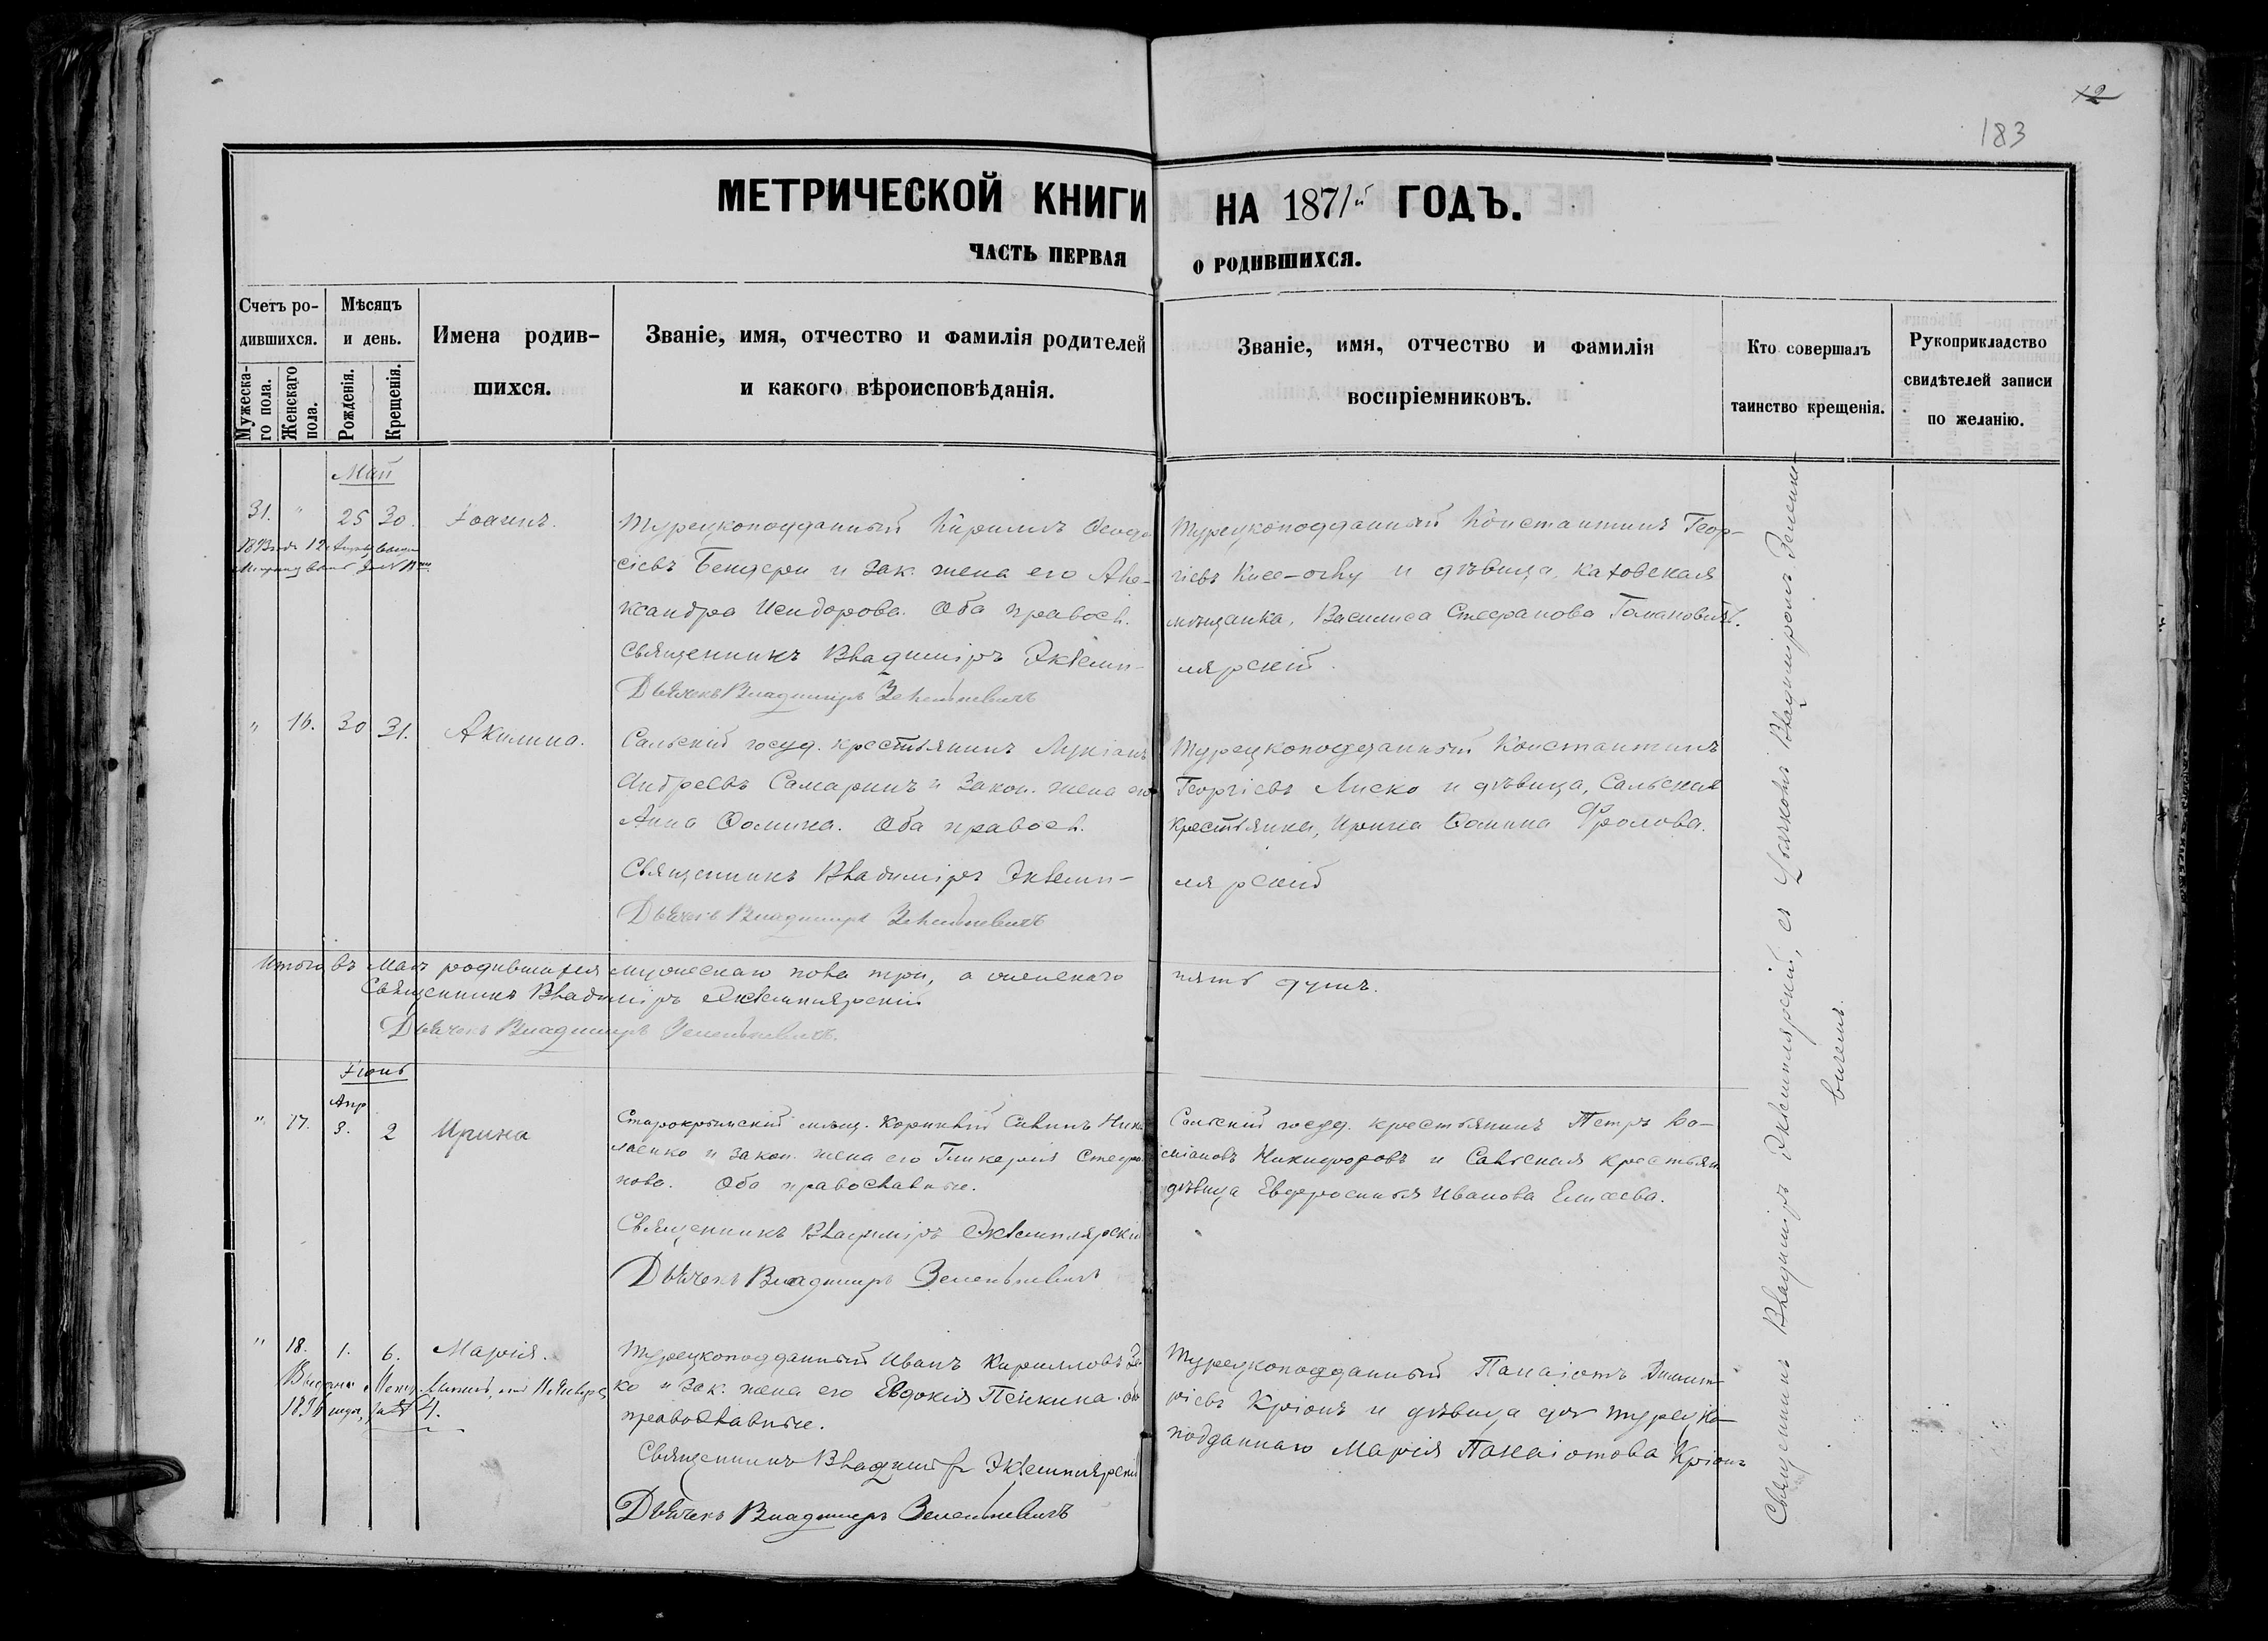 12
183
МЕТРИЧЕСКОЙ КНИГИ НА 1871й ГОДЪ.
ЧАСТЬ ПЕРВАЯ О РОДИВШИХСЯ.
Счетъ ро-
дившихся.
Мужеска-
го пола.
Женскаго
пола.
Мѣсяцъ
и день.
Рожденія.
Крещенія.
Имена родив-
шихся.
Званіе, имя, отчество и фамилія родителей
и какого вѣроисповѣданія.
Званіе, имя, отчество и фамилія
воспріемниковъ.
Кто совершалъ
таинство крещенія.
Рукоприкладство
свидѣтелей записи
по желанію.
Май
31. " 25 30. Іоаннъ.
Турецкоподданный Кириллъ Ѳеодо
сіевъ Бендери и зак. жена его Але-
ксандра Исидорова. Оба правосл.
Священникъ Владиміръ Экземп-
Дьячекъ Владимиръ Зеленкевичъ
Турецкоподданный Константинъ Геор-
гіевъ и дѣвица,
мѣщанка, Василиса Стефанова
лярскій.
" 16. 30 31. Акилина.
Сальскій госуд. крестьянинъ Лукіанъ
Андреевъ Самаринъ и Закон. жена его
Анна Ѳомина. Оба правосл.
Священникъ Владиміръ Экземп-
Дьячекъ Владимиръ Зеленкевичъ
Турецкоподданный Константинъ
Георгіевъ Лиско и дѣвица, Сальская
крестьянка, Ирина Ѳомина Фролова.
лярскій
Итого въ Маѣ родившихся мужескаго пола три, а женскаго пять душъ.
Священникъ Владиміръ Экземплярскій
Дьячекъ Владимиръ Зеленкевичъ.
Іюнь
" 17. Апр 3. 2 Ирина
Старокрымскій мѣщ. Корнилій Саввинъ Нико
лаенко и закон. жена его Гликерія Стефа
нова. Оба православные.
Священникъ Владиміръ Экземплярскій
Дьячекъ Владимиръ Зеленкевичъ
Сальскій госуд. крестьянинъ Петръ Ко-
сміановъ Никифоровъ и Сальская крестьян
дѣвица Евфросинья Иванова Елисеева.
" 18. 1. 6. Марія.
1896 года, за № 4.
Турецкоподданный Иванъ Кирилловъ
ко и Зак. жена его Евдокія Пейкина. Оба
православные.
Священникъ Владиміръ Экземплярскій
Дьячекъ Владимиръ Зеленкевичъ
Турецкоподданный Панаіотъ Димит-
ріевъ Кріонъ и дѣвица дочь турецко-
подданнаго Марія Панаіотова Кріонъ
Священникъ Владиміръ Экземплярскій, съ Дьячкомъ Владиміромъ Зеленке-
вичемъ.